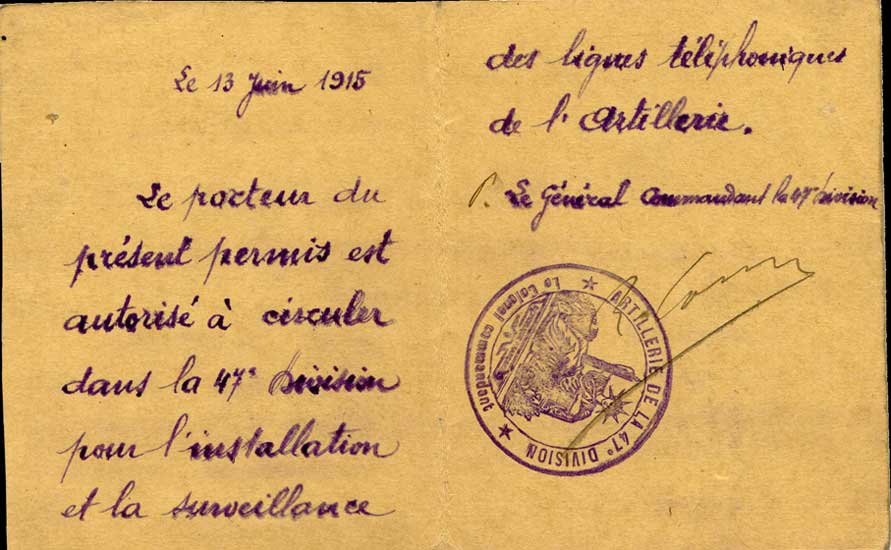 Le 13 Juin 1915
Le porteur du
présent permis est
autorisé à circuler
dans la 47e Division
pour l'installation
et la surveillance
des lignes téléphoniques
de l'Artillerie.
P. Le Général Commandant la 47e Division
ARTILLERIE DE LA 47e DIVISION
Le Colonel commandant